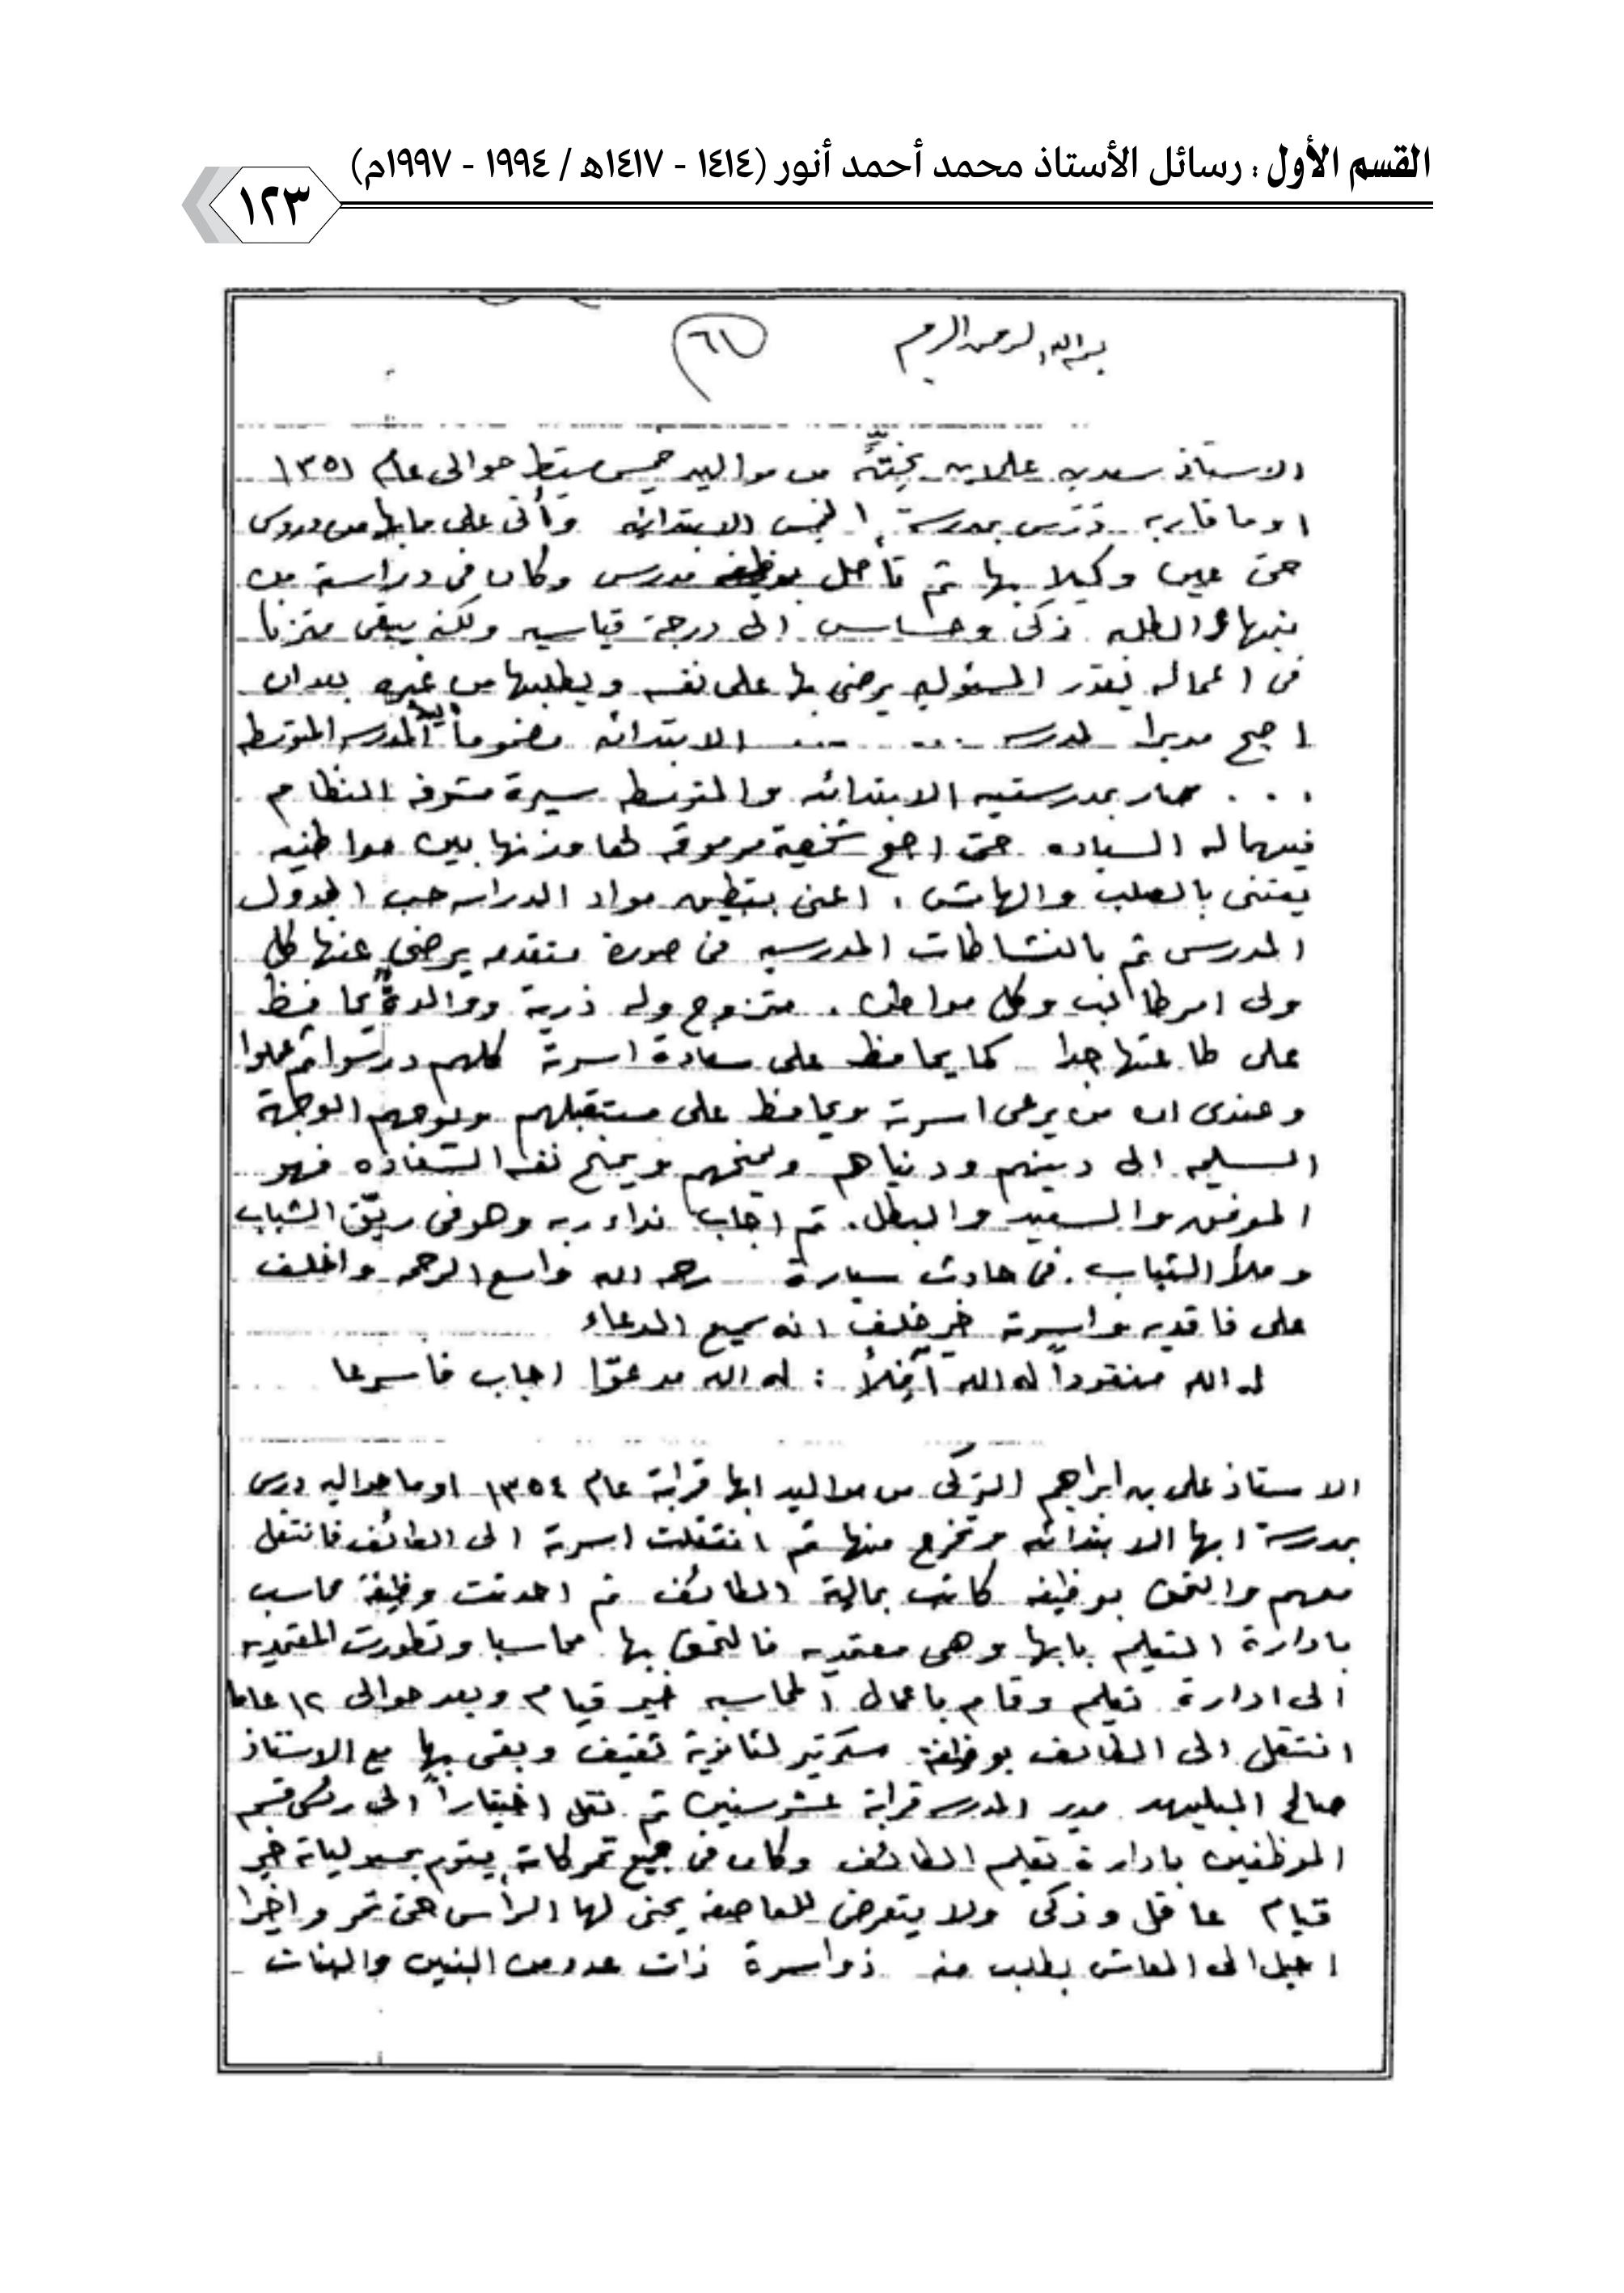 القسم الأول : رسائل الأستاذ محمد أحمد أنور (١٤١٤ - ١٤١٧هـ / ١٩٩٤ - ١٩٩٧م)
١٢٣
بسم الله الرحمن الرحيم
٦٧
الاستاذ سعد بن علي من مواليد خميس مشيط حوالى عام ١٣٥١
او ما قاربه دَرَس بمدرسة الخميس الابتدائيه وأتى على ما بها من دروس
حتى عين وكيلا بها ثم تأهل بوظيفه مدرس وكان فى دراسته من
نبهاء الطلبه ذكى وحساس الى درجة قياسيه ولكنه يبقى متزنا
فى اعماله يقدر المسئوليه يرضى بها على نفسه ويطلبها من غيره بعد ان
اصبح مديرا لمدرسه ... ... الابتدائه مضموماً اليه المدرسه المتوسطه
. . . سار بمدرستيه الابتدائه والمتوسطه سيرة مشرفه النظام
فيهما له السياده حتى اصبح شخصية مرموقه لها وزنها بين مواطنيه
يعتنى بالصلب والهامش ، اعنى بتطبيق مواد الدراسه حسب الجدول
المدرسى ثم بالنشاطات المدرسيه فى صورة متقدمه يرضى عنها كل
ولى امر طالب وكل مواطن . متزوج وله ذرية ووالدة يحافظ
على طاعتها جدا كما يحافظ على سعادة اسرته كلهم درسوا ثم عملوا
وعندى ان من يرعى اسرته ويحافظ على مستقبلهم ويوجههم الوجهة
السليمه الى دينهم ودنياهم ويمنحهم ويمنح نفسه السعاده فهو
الموفق والسعيد والبطل . ثم اجاب نداء ربه وهو فى ريّق الشباب
وملأ الشباب . فى حادث سيارة رحمه الله واسع الرحمه واخلف
على فاقديه واسرته خير خلف انه سميع الدعاء
له الله مفقوداً له الله آفلاً : له الله مدعوّا اجاب فأسرعا
الاستاذ على بن ابراهيم التركى من مواليد ابها قرابة عام ١٣٥٤ او ما حواليه درس
بمدرسة ابها الابتدائه وتخرج منها ثم انتقلت اسرته الى الطائف فانتقل
معهم والتحق بوظيفه كاتب بمالية الطائف ثم احدثت وظيفة محاسب
بادارة التعليم بابها وهى معتمديه فالتحق بها محاسبا وتطورت المعتمديه
الى ادارة تعليم وقام باعمال المحاسبه خير قيام وبعد حوالى ١٢ عاما
انتقل الى الطائف بوظيفة سكرتير لثانوية ثقيف وبقى بها مع الاستاذ
صالح المليهد مدير المدرسه قرابة عشر سنين ثم نقل اختياراً الى رئيس قسم
الموظفين بادارة تعليم الطائف وكان فى جميع تحركاته يقوم بمسولياته خير
قيام عاقل وذكى ولا يتعرض للعاصفه يحنى لها الرأس حتى تمر واخيرا
احيل الى المعاش بطلب منه ذو اسرة ذات عدد من البنين والبنات